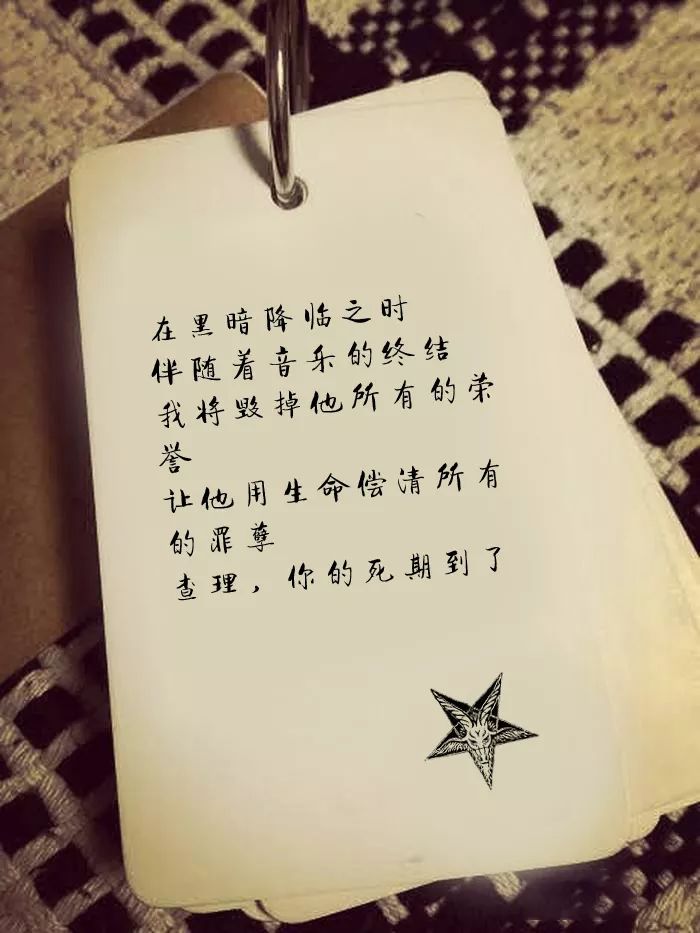 在黑暗降临之时
伴随着音乐的终结
我将毁掉他所有的荣
誉
让他用生命偿清所有
的罪孽
查理，你的死期到了